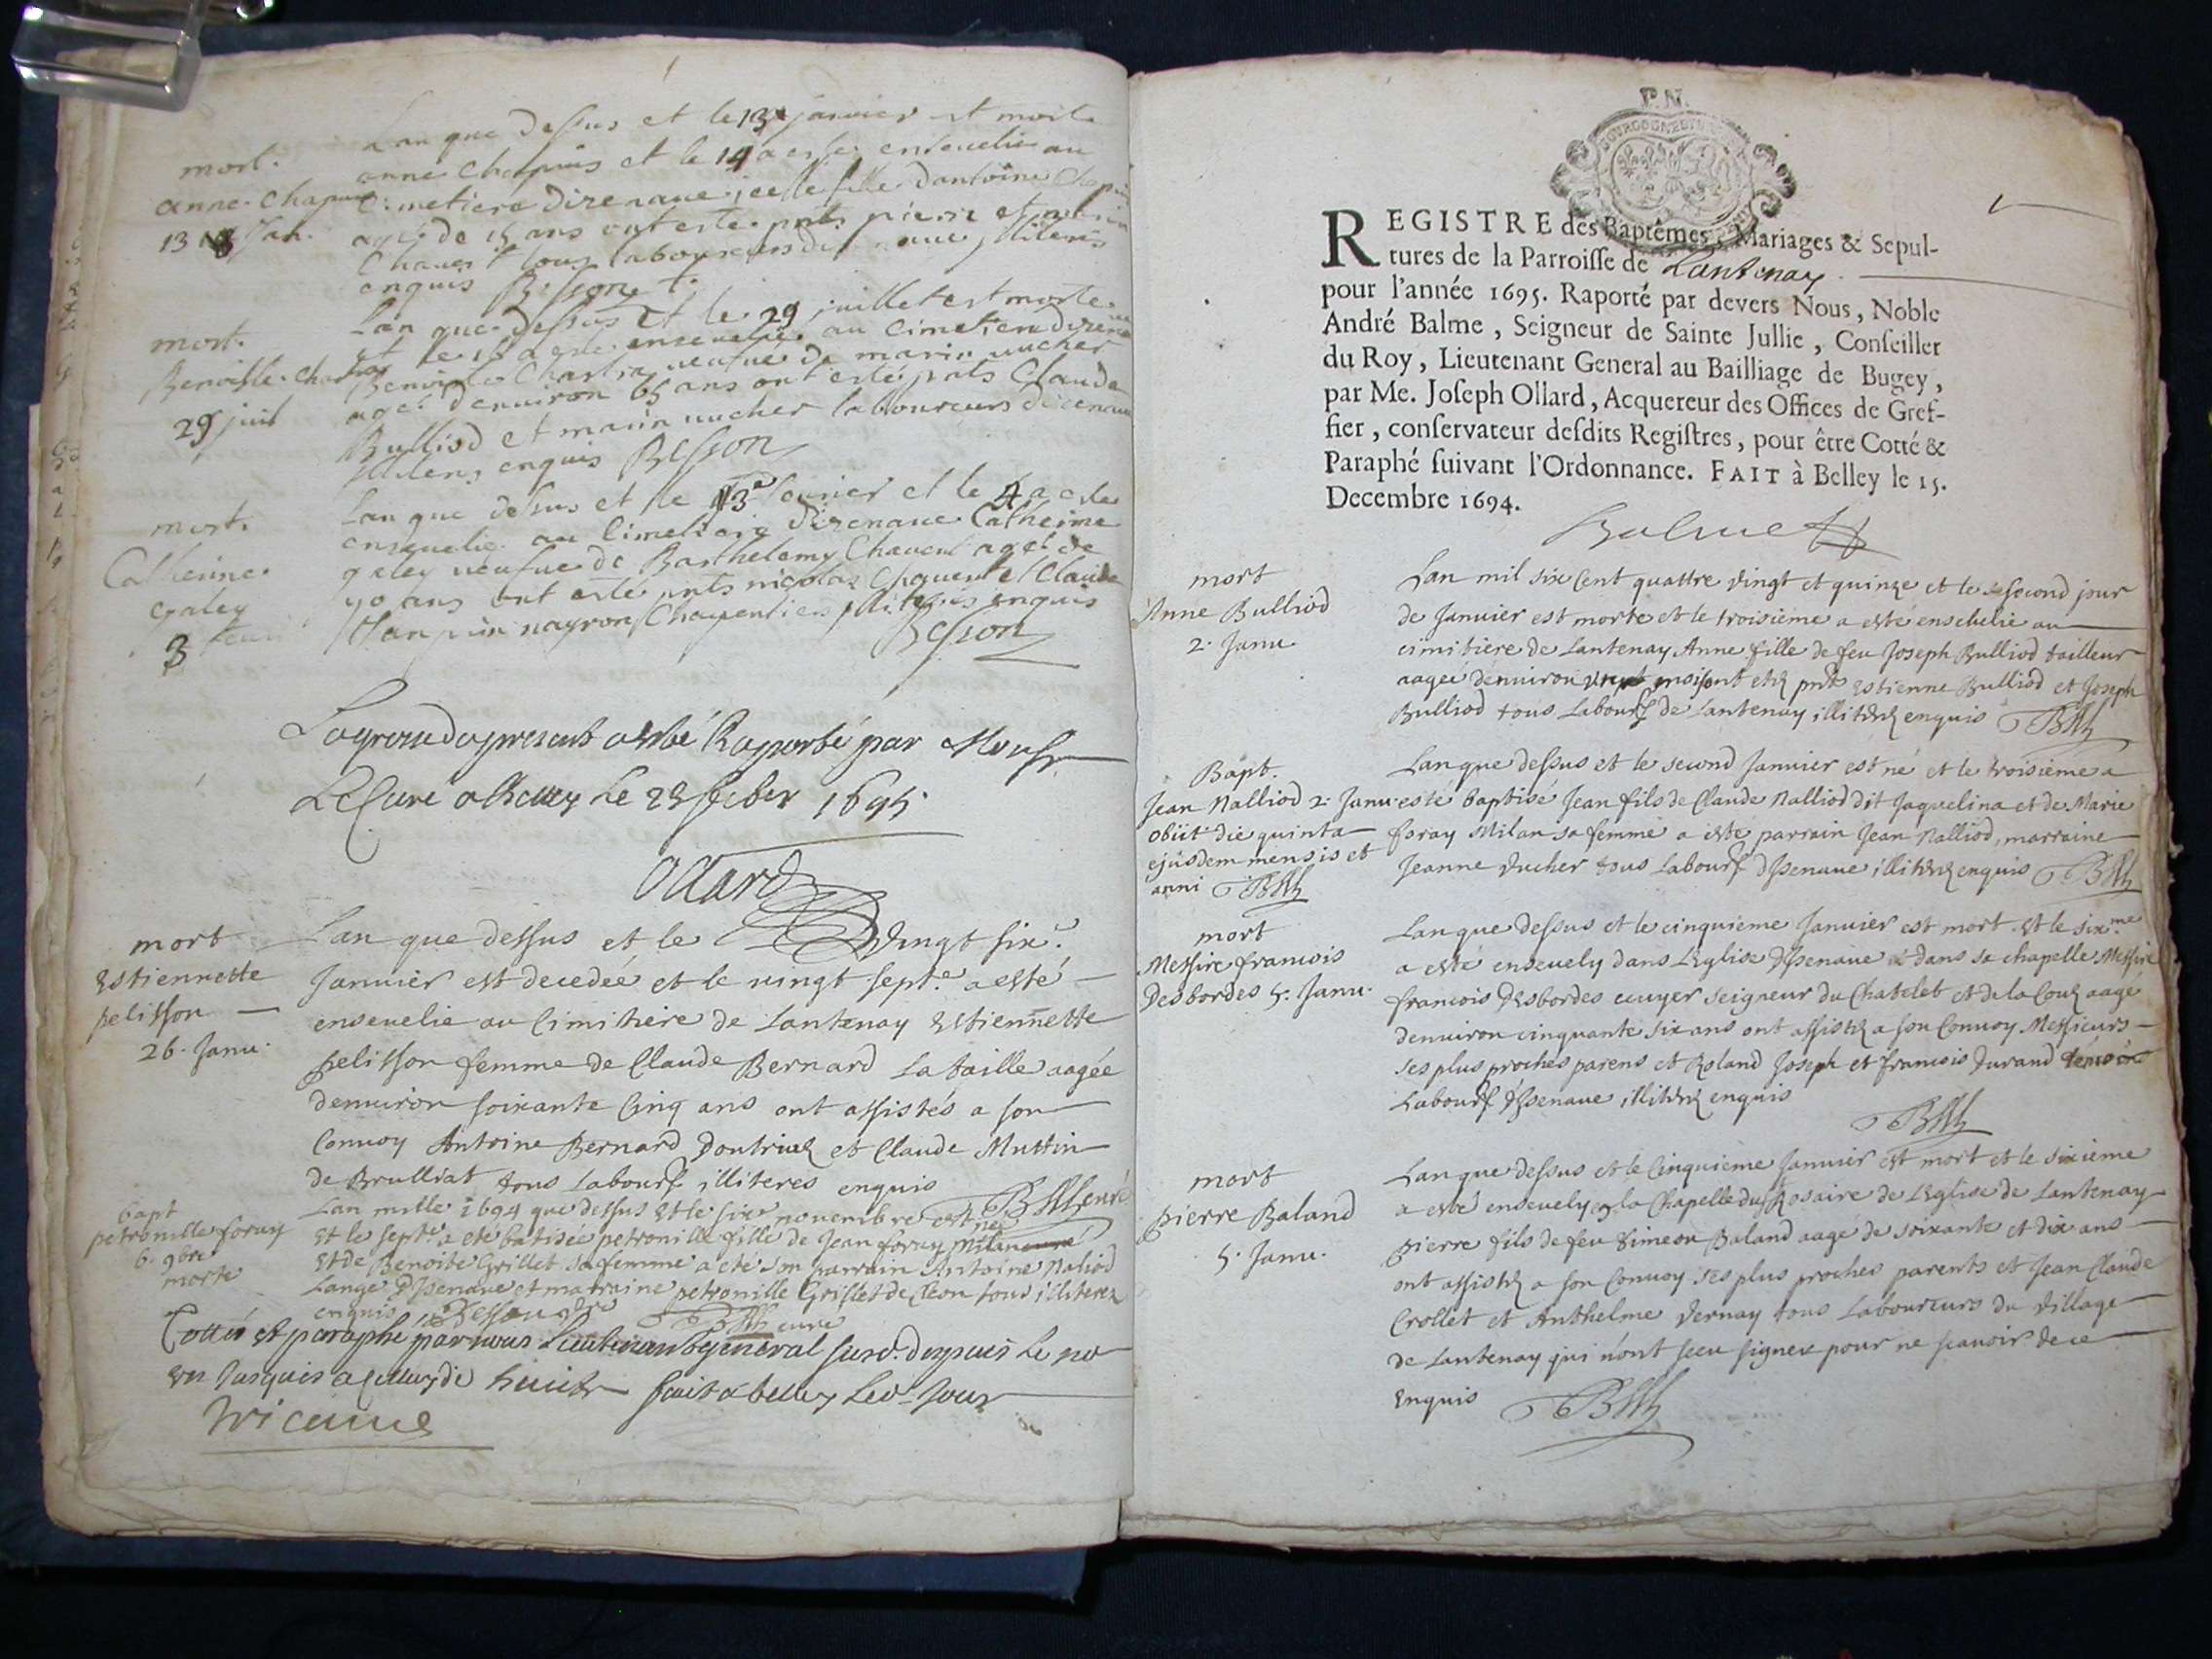 mort.
anne. Chapuis
13 Jan.
Lan que dessus et le 13 janvier est morte
anne Chapuis et le 14 a este enseuelie au
Cimetiere dizenaue icelle fille dantoine Chapuis
agee de 15 ans ont este pnts pierre et
Chauent tous laboureurs dizenaue illiteres
enquis Besson
mort.
Benoiste. Charlin
29 juil
Lan que dessus et le 29 juillet est morte
et le a este enseuelie au Cimetiere dizenaue
Benoiste Charlin veufue de marin vucher
agee denuiron 65 ans ont esté pnts Claude
Bulliod et marin vucher laboureurs dizenaue
illiters enquis Besson
mort.
Catherine.
Galey
3 feur
Lan que dessus et le 3e feurier et le 4 a este
enseuelie au Cimetiere dizenaue Catherine
galey veufue de Barthelemy Chauent agee de
70 ans ont esté pnts nicolas Chauent et Claude
nayron Charpentiers illiterés enquis
Besson
a esté Raporté par Monsr
Le Cure a Belley Le 1695.
Ollard
mort
Estiennette
pelisson —
26. Janu.
Lan que dessus et le vingt six.e
Januier est decedeé et le vingt sept.e a esté
enseuelie au Cimitiere de Lantenay Estiennette
pelisson femme de Claude Bernard La taille aagée
denuiron soixante Cinq ans ont assistés a son
Conuoy Antoine Bernard Doutriaz et Claude Muttin
de Brulliat tous Labours illiteres enquis
bapt
petronille foray
6. 9bre
morte
Lan mille 1694 que dessus et le six.e nouembre est neé
Et le sept.e a eté batisée petronille fille de Jean foray Milan
Et de Benoite Grillet sa femme a eté son parrain Antoine Naliod
Lange Dissenaue et marraine petronille Grillet de Cleon tous illiterez
enquis
curé
Cotté et paraphé par nous Lieutenant general susd. depuis Le
Jusques a fait a belley Led. Jour
P. N.
REGISTRE des Baptêmes, Mariages & Sepul-
tures de la Parroisse de Lantenay.
pour l'année 1695. Raporté par devers Nous, Noble
André Balme, Seigneur de Sainte Jullie, Conseiller
du Roy, Lieutenant General au Bailliage de Bugey,
par Me. Joseph Ollard, Acquereur des Offices de Gref-
fier, conservateur desdits Registres, pour être Cotté &
Paraphé suivant l'Ordonnance. FAIT à Belley le 15.
Decembre 1694.
Balme
mort
Anne Bulliod
2. Janu.
Lan mil six Cent quattre vingt et quinze et le second jour
de Januier est morte et le troisieme a esté enseuelie au
cimitiere de Lantenay Anne fille de feu Joseph Bulliod tailleur
aagée denuiron mois ont etez pnts Estienne Bulliod et Joseph
Bulliod tous Labours de Lantenay illiterez enquis
Bapt.
Jean Nalliod 2. Janu.
obiit die quinta
ejusdem mensis et
anni
Lan que dessus et le second Januier est né et le troisieme a
esté baptisé Jean fils de Claude Nalliod dit Jaquelina et de Marie
foray Milan sa femme a esté parrain Jean Nalliod, marraine
Jeanne Vucher tous Labours dIsenaue illiterez enquis
mort
Messire francois
Desbordes 5. Janu.
Lan que dessus et le cinquieme Januier est mort et le six.me
a esté enseuely dans LEglise dIsenaue et dans sa chapelle Messire
francois Desbordes ecuyer seigneur du Chatelet et de la Couz aagé
denuiron cinquante six ans ont assistez a son Conuoy Messieurs
ses plus proches parens et Roland Joseph et francois Durand temoins
Labours dIsenaue illiterez enquis
mort
pierre Baland
5. Janu.
Lan que dessus et le Cinquieme Januier est mort et le sixieme
a esté enseuely en la Chapelle du Rosaire de LEglise de Lantenay
pierre fils de feu Simeon Baland aagé de soixante et dix ans
ont assistez a son Conuoy ses plus proches parents et Jean Claude
Crollet et Anthelme Vernay tous Laboureurs du Village
de Lantenay qui n'ont sceu signer pour ne scauoir de ce
enquis